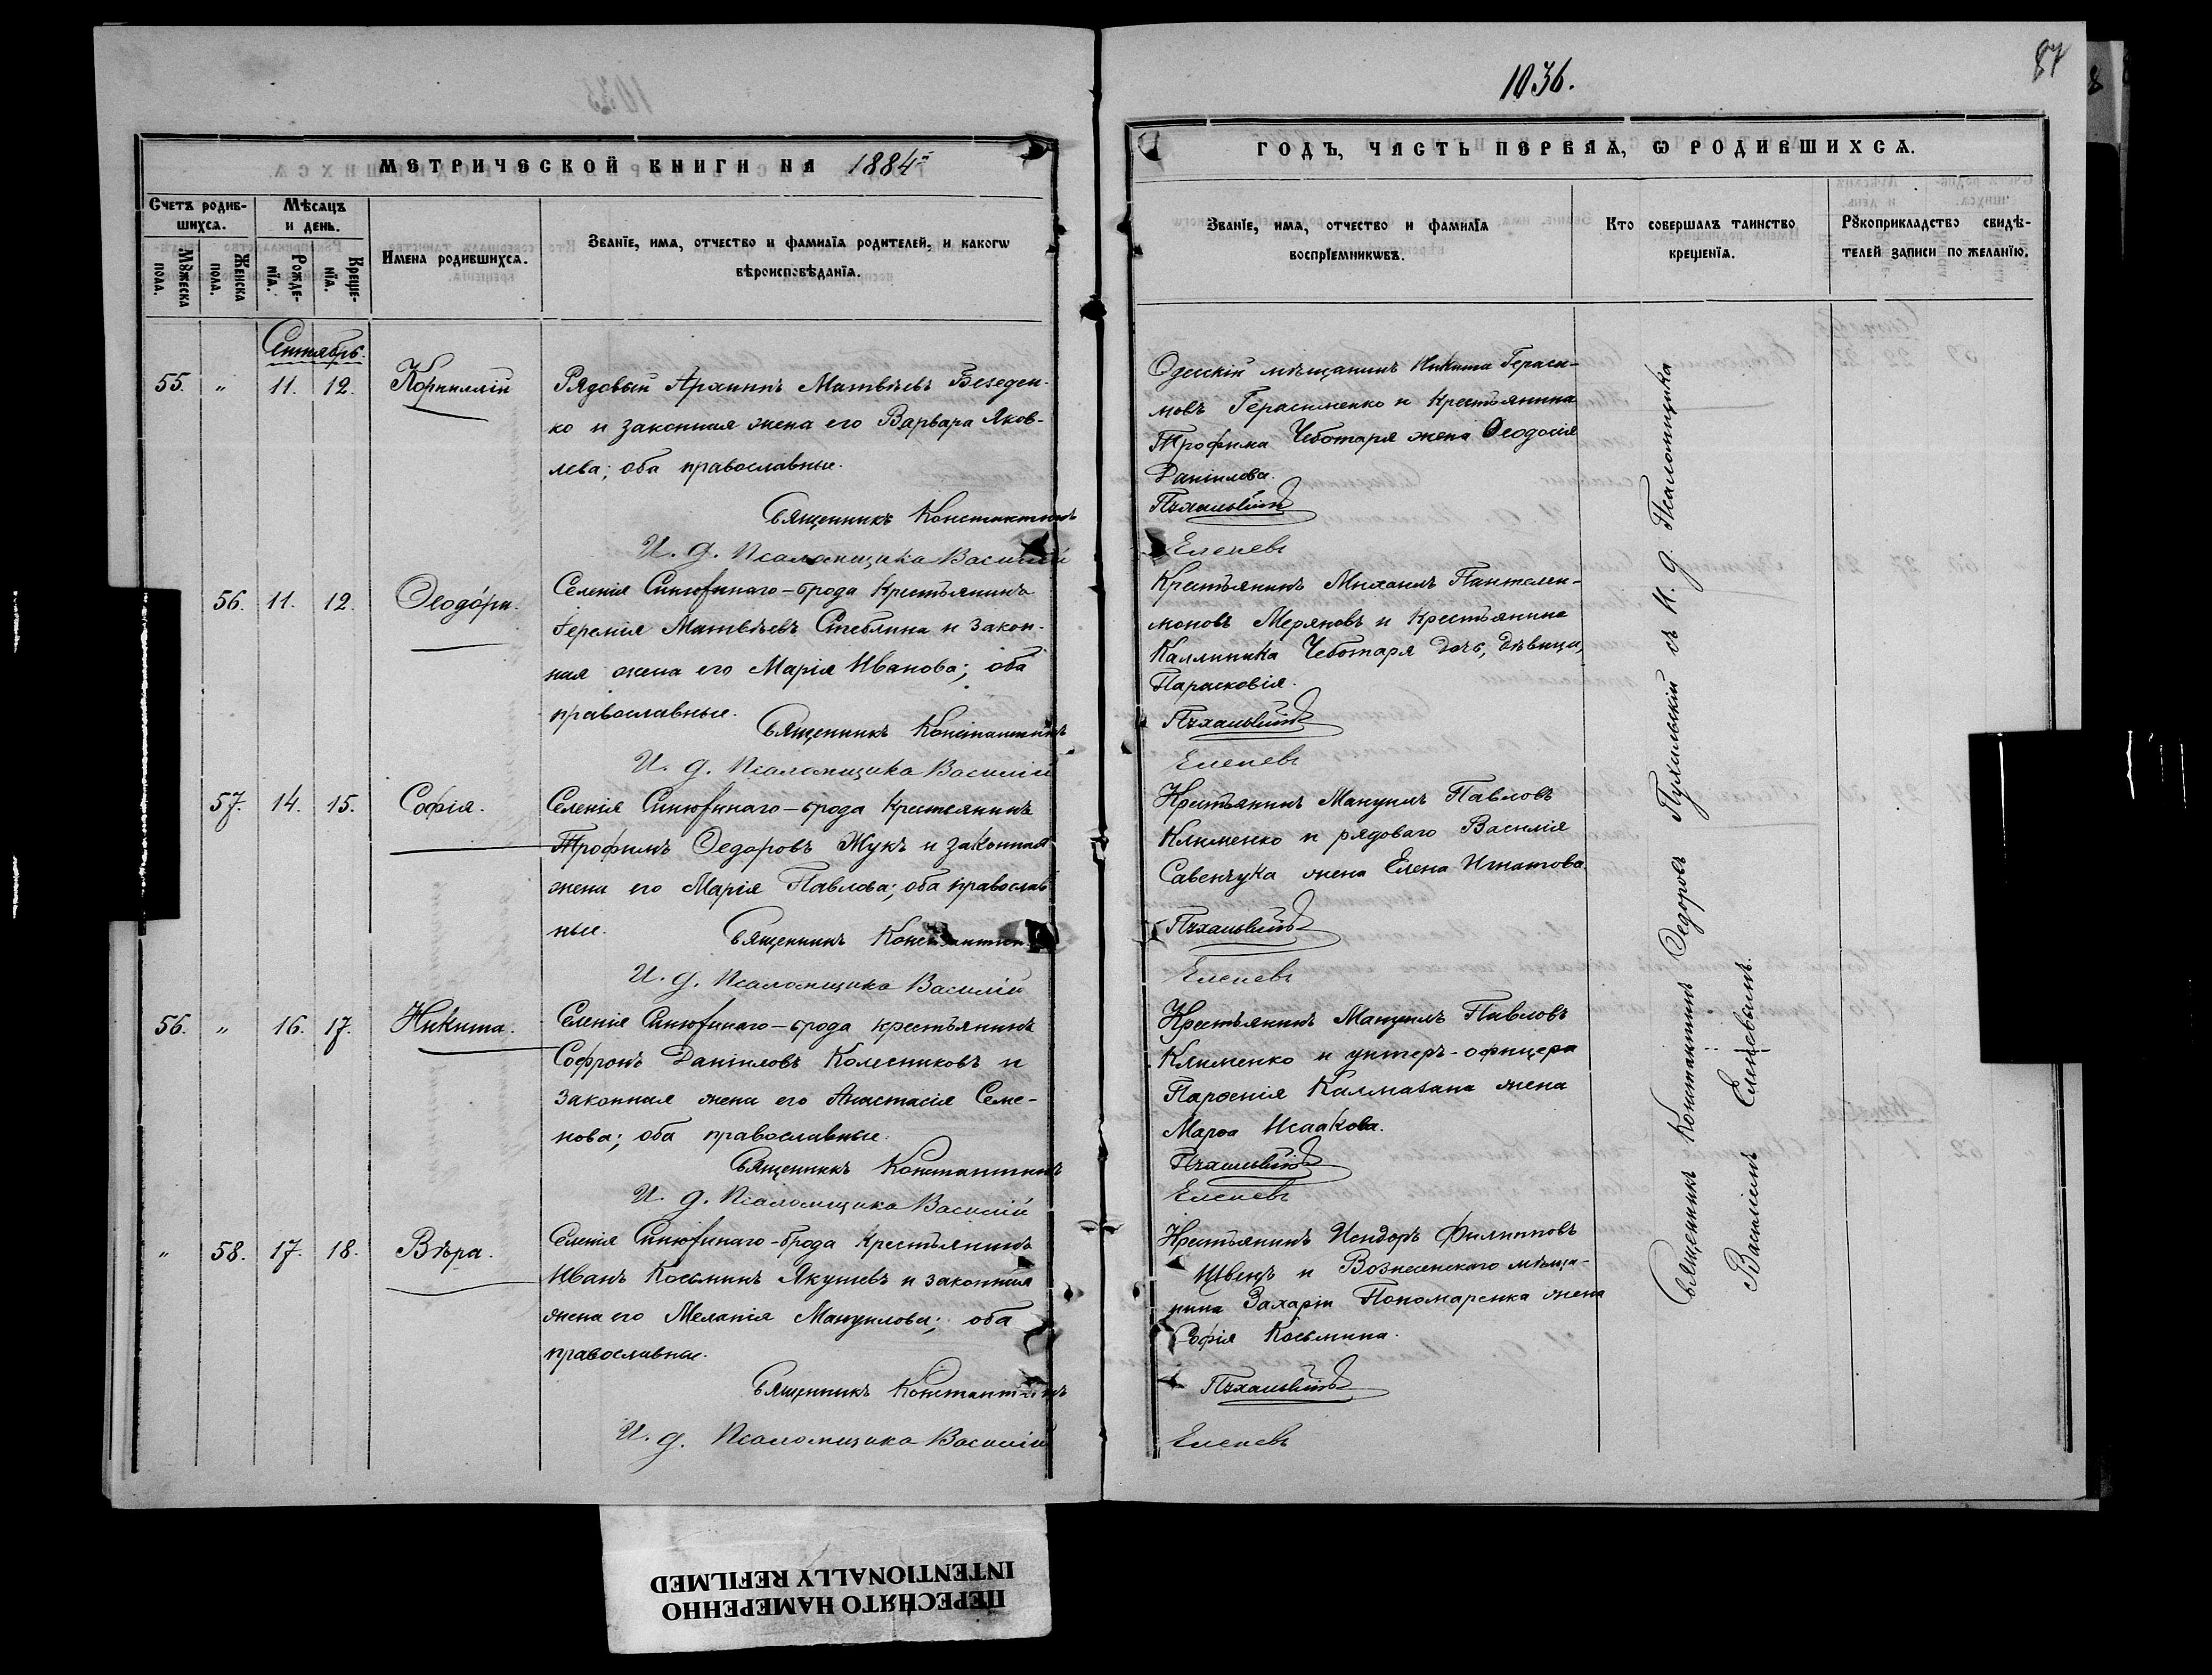 1036.
87
МЕТРИЧЕСКОЙ КНИГИ НА 1884й
ГОДЪ, ЧАСТЬ ПЕРВАЯ, Ѡ РОДИВШИХСѦ.
Счетъ родив-
шихсѧ.
Мѣсяцъ
и день.
Мꙋжеска
пола.
Женска
пола.
Рожде-
нїѧ.
Креще-
нїѧ.
Имена родившихсѧ.
Званїе, имѧ, отчество и фамилїѧ родителей, и какогѡ
вѣроисповѣданїѧ.
Званїе, имѧ, отчество и фамилїѧ
воспрїемникѡвъ.
Кто совершалъ таинство
крещенїѧ.
Рꙋкоприкладство свидѣ-
телей записи по желанїю.
Сентябрь.
55. " 11. 12. Корнилій
Рядовый Архипъ Матвѣевъ Безеден-
ко и законная жена его Варвара Яков-
лева; оба православные.
Священникъ Константинъ
И. д. Псаломщика Василій
Одесскій мѣщанинъ Никита Гераси-
мовъ Герасименко и крестьянина
Трофима Чеботаря жена Ѳеодосія
Даніилова.
Пухальскій
Еленевъ
56. 11. 12. Ѳеодора.
Селенія Синюхинаго-брода крестьянинъ
Іеремія Матвѣевъ Стеблина и закон-
ная жена его Марія Иванова; оба
православные.
Священникъ Константинъ
И. д. Псаломщика Василій
Крестьянинъ Михаилъ Пантелеи-
моновъ Меряновъ и крестьянина
Каллиника Чеботаря дочь, дѣвица,
Парасковія.
Пухальскій
Еленевъ
57. 14. 15. Софія.
Селенія Синюхинаго-брода крестьянинъ
Трофимъ Ѳедоровъ Жукъ и законная
жена его Марія Павлова; оба православ
ные.
Священникъ Константинъ
И. д. Псаломщика Василій
Крестьянинъ Мануилъ Павловъ
Клименко и рядоваго Василія
Савенчука жена Елена Игнатова.
Пухальскій
Еленевъ
56. " 16. 17. Никита.
Селенія Синюхинаго-брода крестьянинъ
Софронъ Даніиловъ Колесниковъ и
законная жена его Анастасія Семе-
нова; оба православные.
Священникъ Константинъ
И. д. Псаломщика Василій
Крестьянинъ Мануилъ Павловъ
Клименко и унтеръ-офицера
Парѳенія Калмазана жена
Марѳа Исаакова.
Пухальскій
Еленевъ
" 58. 17. 18. Вѣра.
Селенія Синюхинаго-брода крестьянинъ
Иванъ Косьминъ Якушевъ и законная
жена его Меланія Мануилова; оба
православные.
Священникъ Константинъ
И. д. Псаломщика Василій
Крестьянинъ Исидоръ Филипповъ
Швецъ и Вознесенскаго мѣща-
нина Захаріи Пономаренка жена
Софія Косьмина.
Пухальскій
Еленевъ
Священникъ Константинъ Ѳедоровъ Пухальскій съ И. д. Псаломщика
Василіемъ Еленевымъ.
ПЕРЕСНЯТО НАМЕРЕННО
INTENTIONALLY REFILMED